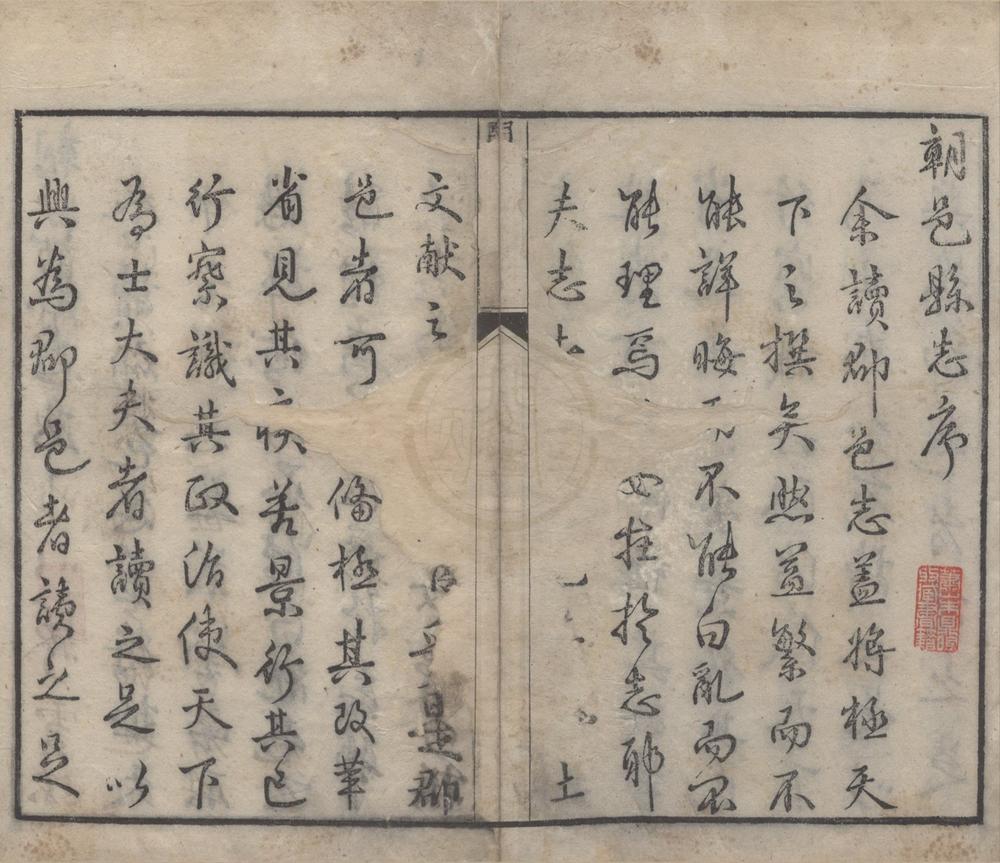 朝邑縣志序
余讀郡邑志蓋將極天
下之撰矣然益繁而不
能詳晦而不能白亂而罔
能理焉 必在於志耶
夫志 
文献之 是郡
邑者可 備極其改革
省見其疾苦景行其已
行察識其政治使天下
為士大夫者讀之足以
興為郡邑者讀之足